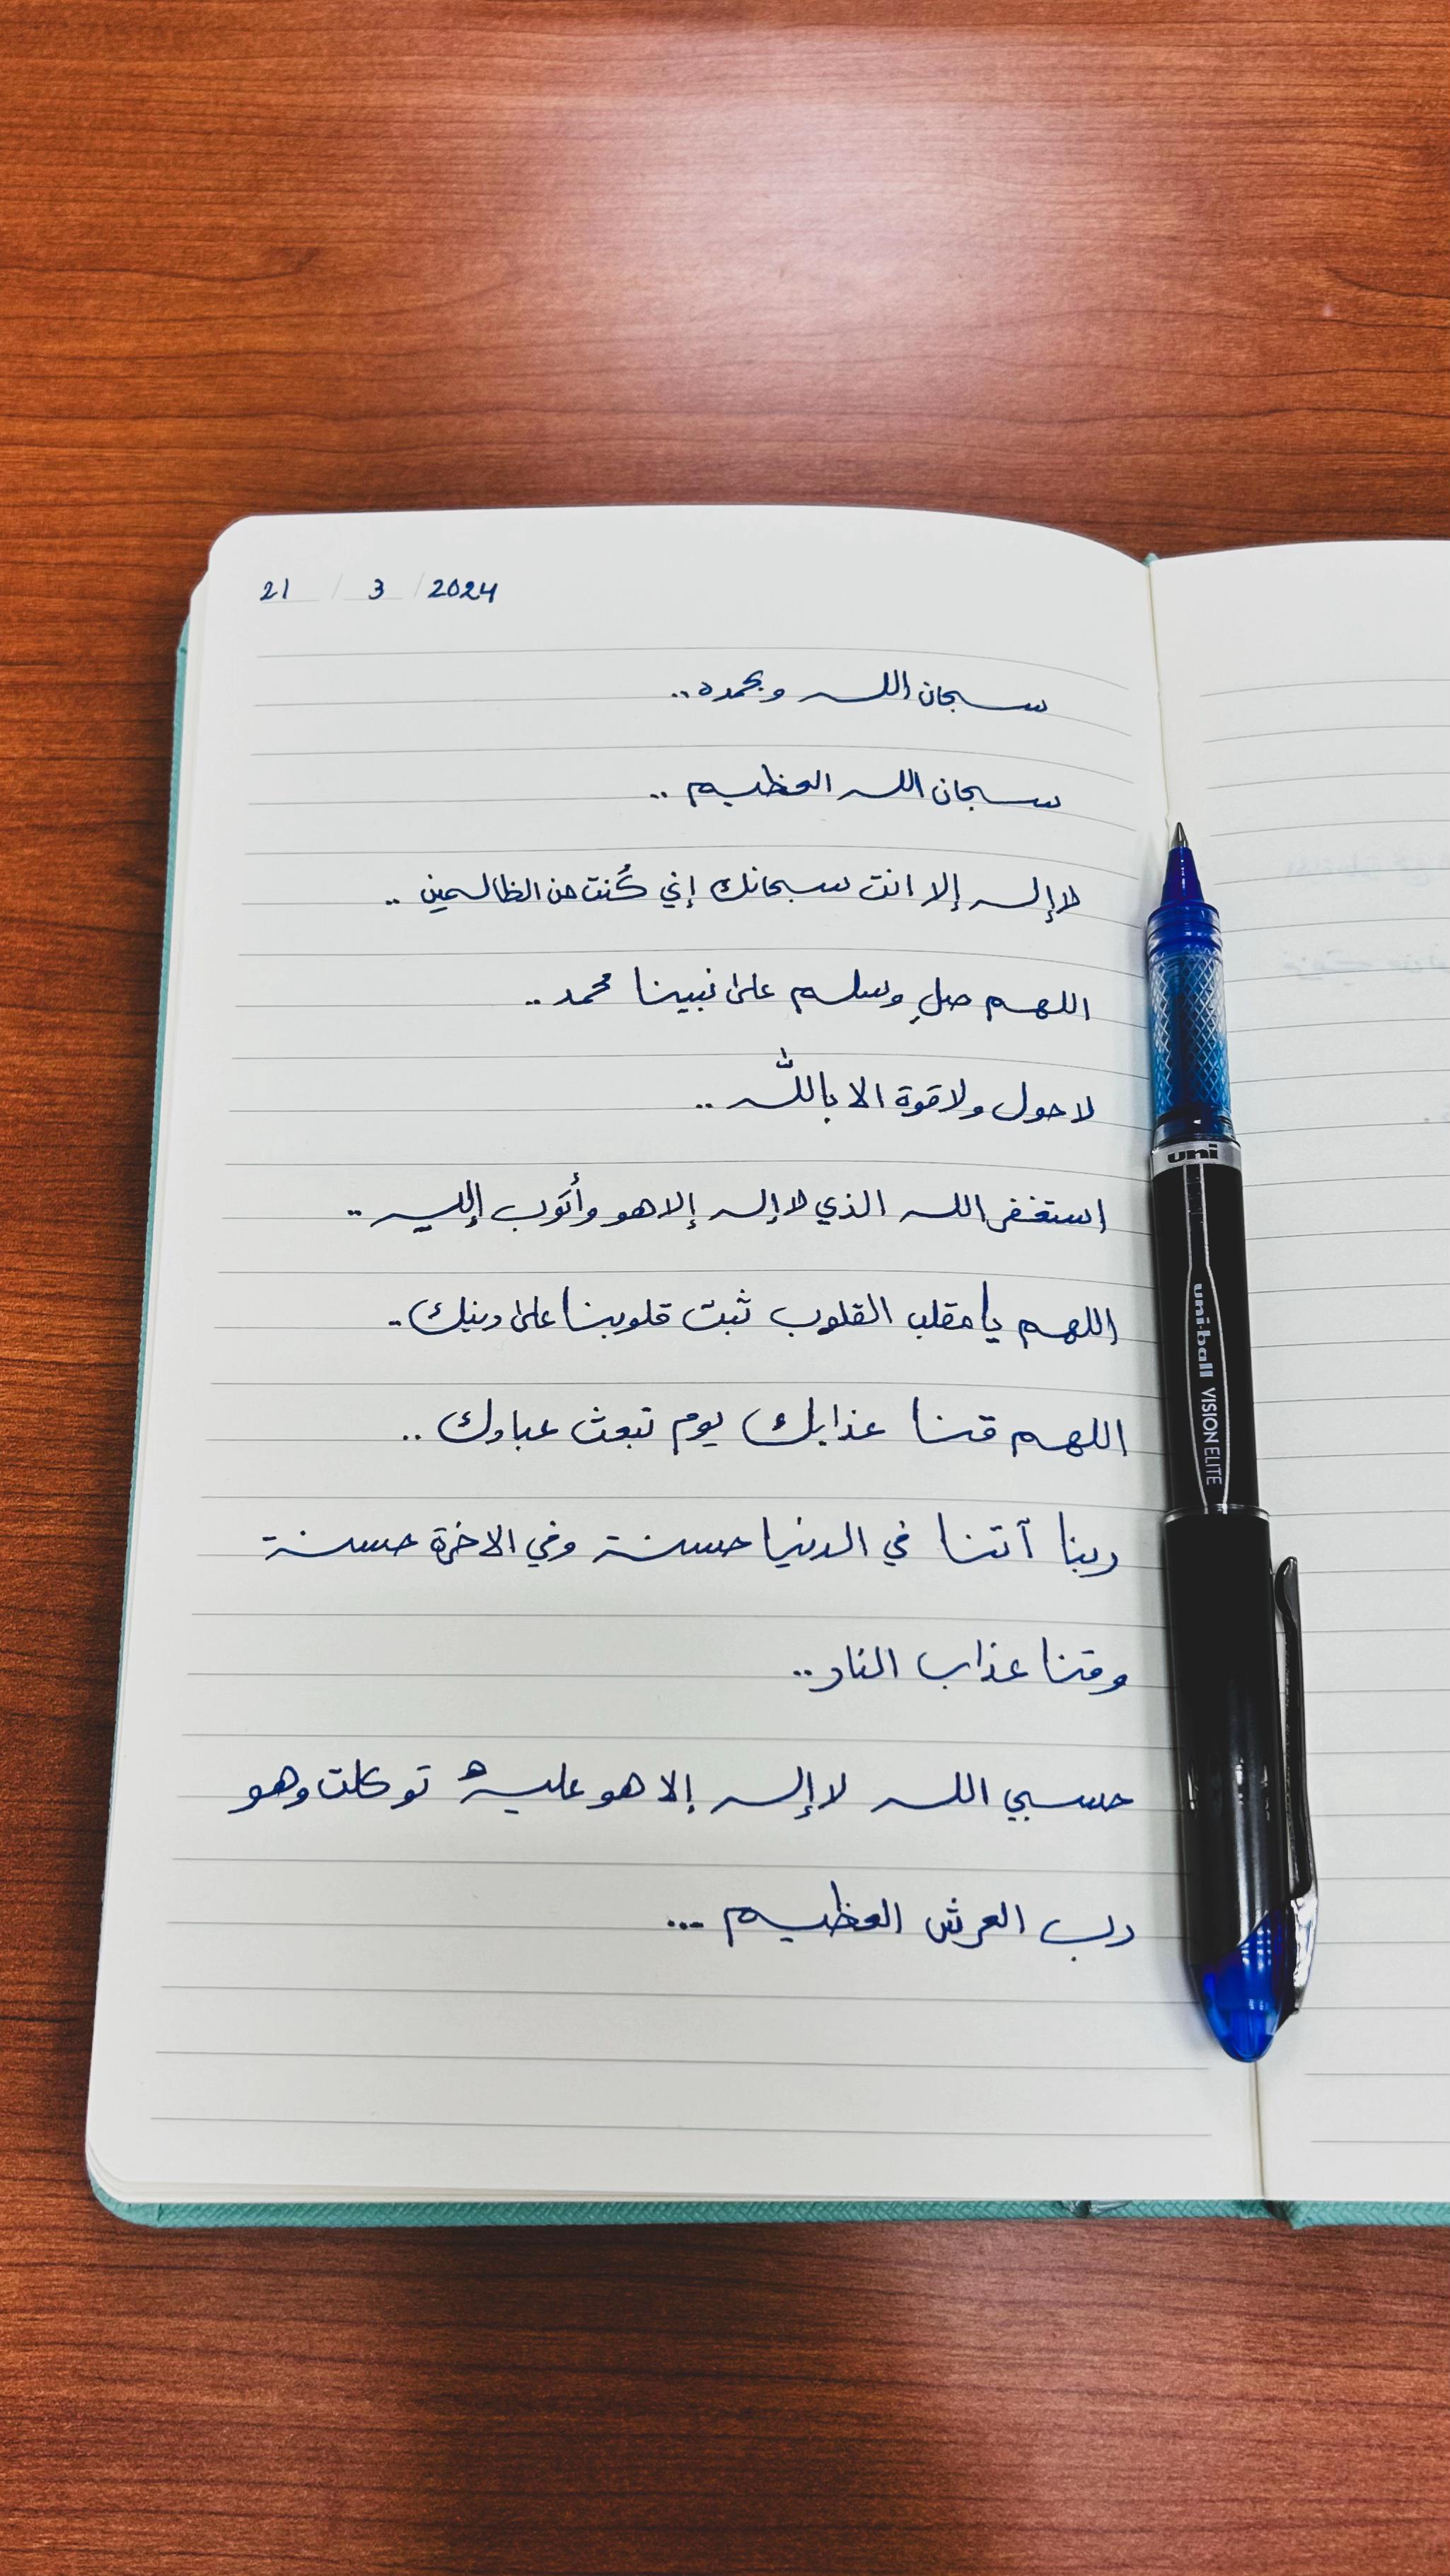 21 / 3 / 2024
سبحان الله وبحمده..
سبحان الله العظيم ..
لا إله إلا انت سبحانك إني كُنت من الظالمين ..
اللهم صلِ وسلم على نبينا محمد ..
لا حول ولا قوة الا بالله ..
استغفر الله الذي لا إله إلا هو وأتوب إليه ..
اللهم يا مقلب القلوب ثبت قلوبنا على دينك ..
اللهم قنا عذابك يوم تبعث عبادك ..
ربنا آتنا في الدنيا حسنة وفي الاخرة حسنة
وقنا عذاب النار ..
حسبي الله لا إله إلا هو عليه توكلت وهو
رب العرش العظيم ...
uni
uni-ball VISION ELITE